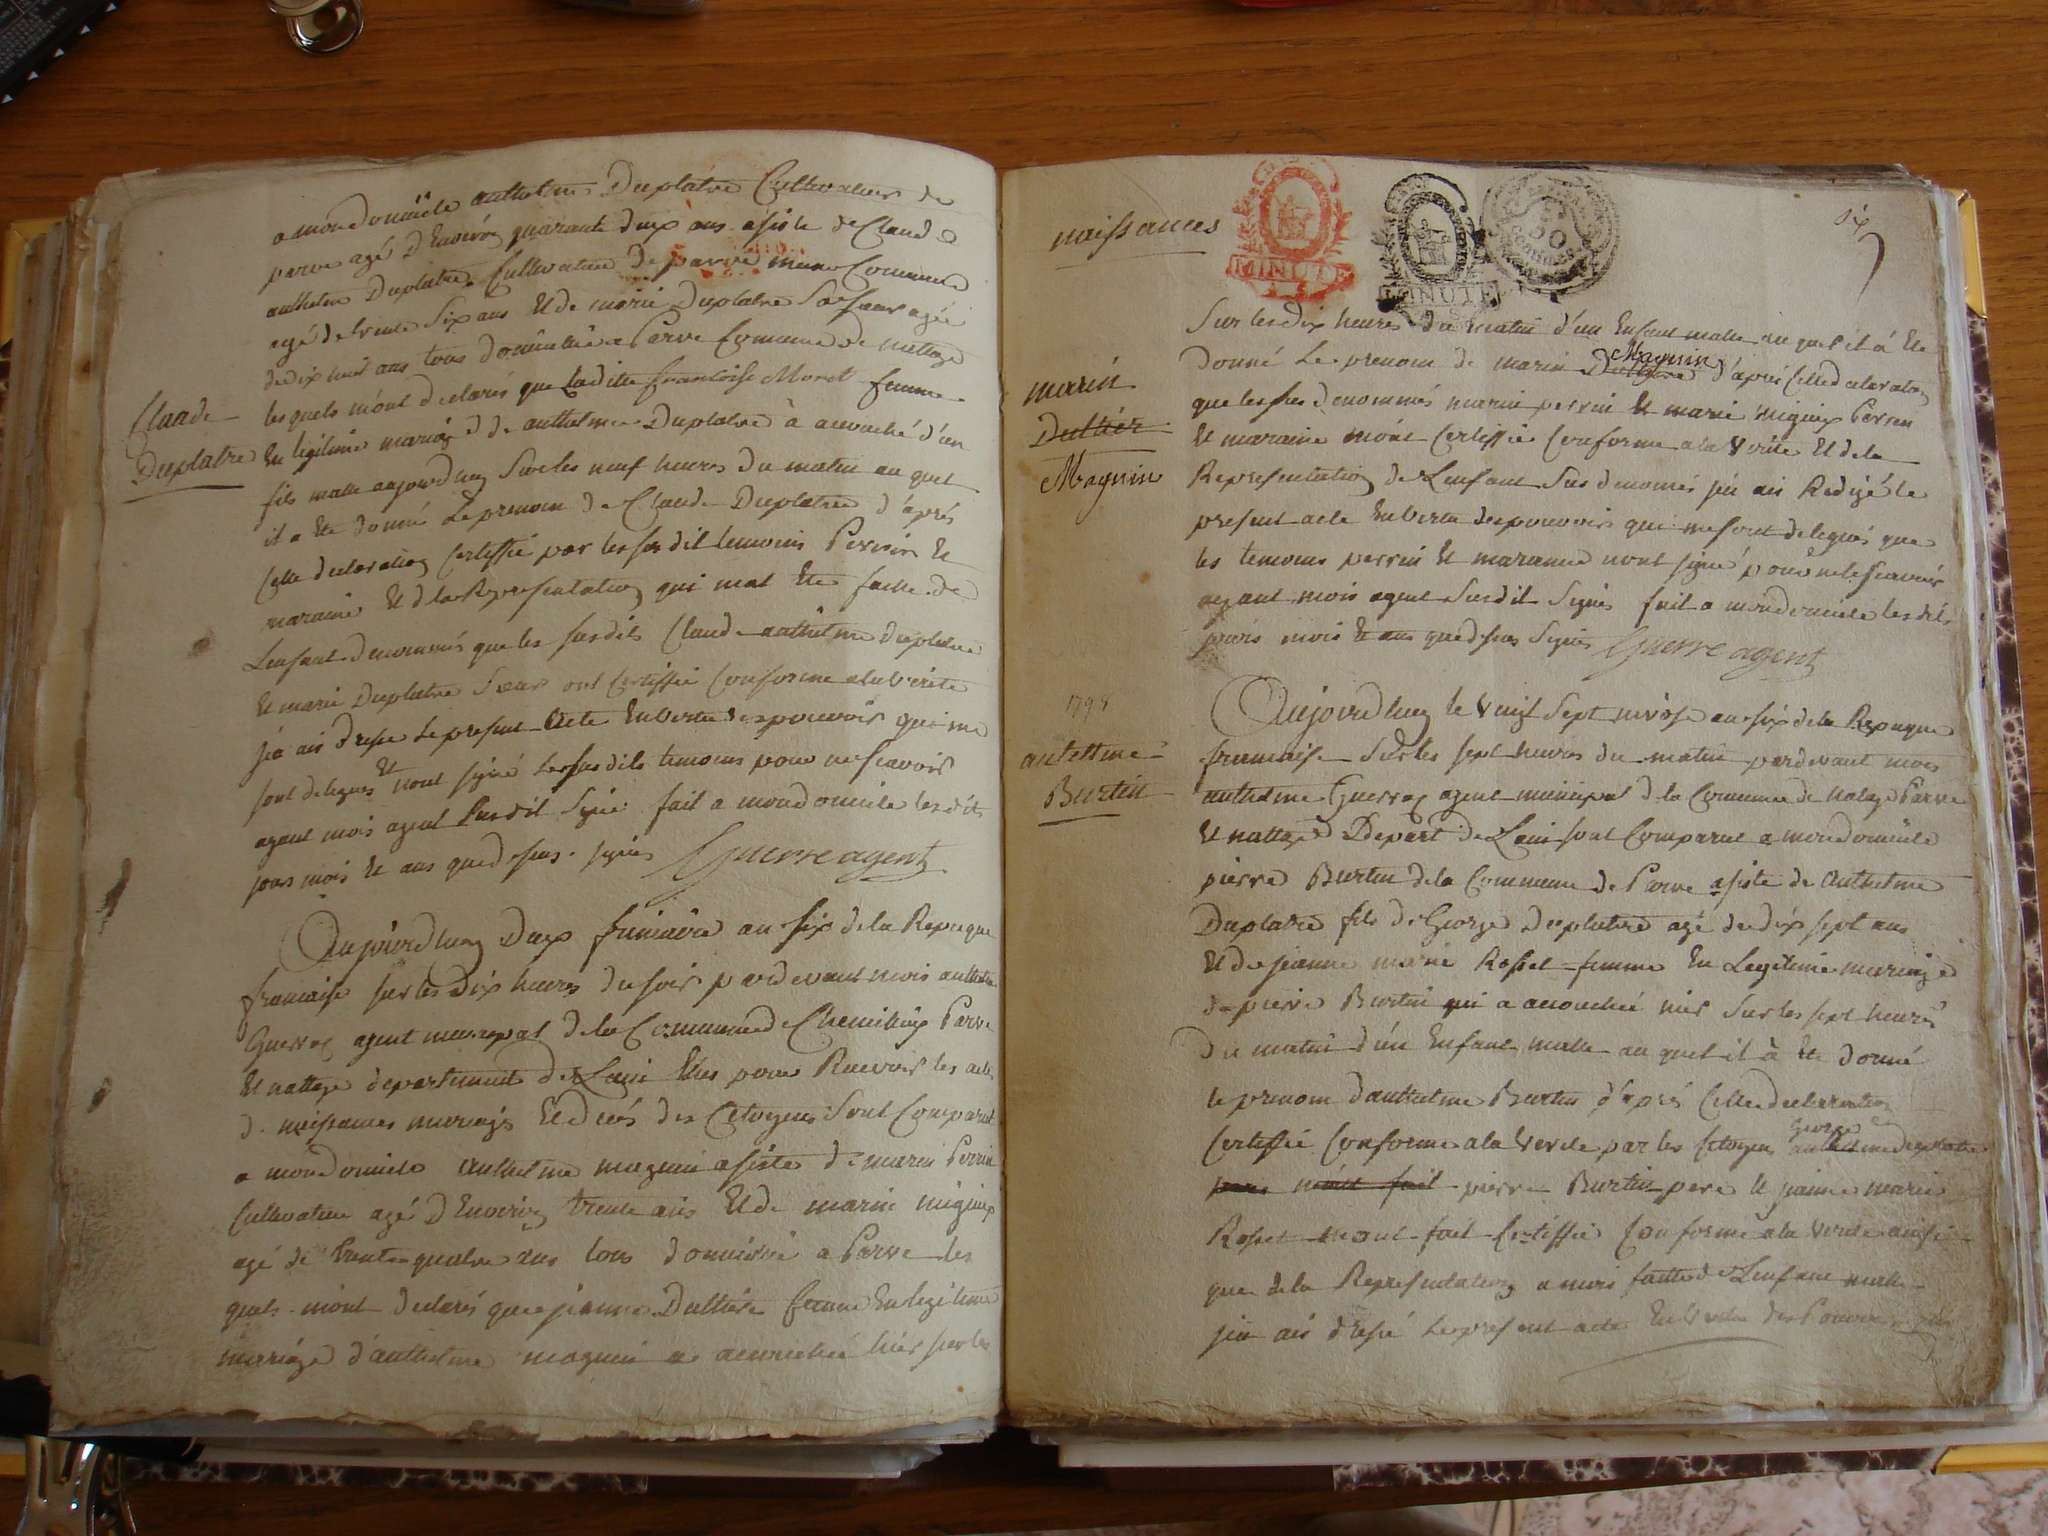 a mon domicile anthelme Duplatre Cultivateur de
parve agé d'Environ quarante deux ans asisté de Claude
anthelme Duplatre Cultivateur de parve meme Commune
agé de trente Six ans Et de marie Duplatre Sa sœur agée
de dix huit ans tous domicilié a Parve Commune de nattage
les quels m'ont declarés que ladite francoise Moret femme
En legitime mariage de anthelme Duplatre à acouché d'un
fils malle aujourd'huy Sur les neuf heures du matin au quel
il a Ete donné Le prenom de Claude Duplatre d'aprés
Cette declaration Certiffié par les susdit temoins Et
maraine Et d la Representation qui mat Ete faitte de
Lenfant denommés que les susdits Claude anthelme Duplatre
Et marie Duplatre Sœur ont Certiffié Conforme ala Verité
jéa ais dresse Le presents Acte En Vertu des pouvoirs qui me
sont delegues Et nont signé Les susdits temoins pour ne Scavoir
ayant mois agent Susdit Signé fait a mon domicile les dit
jours mois Et ans que dessus signés Guerre agent
Claude
Duplatre
Aujourdhuy Deux frimaire an six de la Repuque
francaise sur les Dix heures du soir pardevant mois anthelme
Guerre agent municipal de la Commune de Chemilieux Parve
Et nattage departement de Lain Elus pour Recevoir les actes
de naissances mariages Et décés des Citoyens Sont Comparut
a mon domicile anthelme magnin asisté de marin Perrin
Cultivateur agé d'Environ trente ans Et de marie migieux
agé de trente quatre ans tous domicilié a Parve les
quels mont declarés que jeanne Dultier femme En legitime
mariage d'anthelme magnin a acouchée hier sur les
naissances
MINUTE
MINUTE
50
six
7
Sur les dix heures du matin d'un Enfant malle au quel il à Ete
donné Le prenom de marin Magnin d'aprés Cette declaration
que les sus denommés marin perrin Et marie migieux Perrin
Et maraine m'ont Certiffié Conforme ala Verité Et de la
Representation de Lenfant Sus denomés jéa ais Redigé le
present acte En Vertu des pouvoirs qui me sont delegués que
les temoins perrin Et maraine nont signé pour ne le Scavoir
ayant mois agent Susdit Signés fait a mon domicile les dits
jours mois Et ans que dessus Signés Guerre agent
marin
Dultier
Magnin
1798
antelme
Burtin
Aujourdhuy le vingt Sept nivôse an six de la Repuque
francaise Sur les sept heures du matin pardevant mois
anthelme Guerre agent municipal de la Commune de natage Parve
Et nattage Depart de Lain sont Comparut a mon domicile
pierre Burtin de la Commune de Parve asisté de Anthelme
Duplatre fils de George Duplatre agé de dix sept ans
Et de jeanne marie Rosset femme En Legitime mariage
de pierre Burtin qui a acouchée hier Sur les sept heures
du matin d'un Enfant malle au quel il à Ete donné
le prenom d'anthelme Burtin d'aprés Cette declaration
Certiffié Conforme ala Verité par les Citoyens George anthelme Duplatre
m'ont fait pierre Burtin pere Et jeanne marie
Rosset m'ont fait Certiffié Conforme ala Verité ainsi
que de la Representation a mois faitte de Lenfant malle
jéa ais dressé Le present acte En Vertu des Pouvoirs